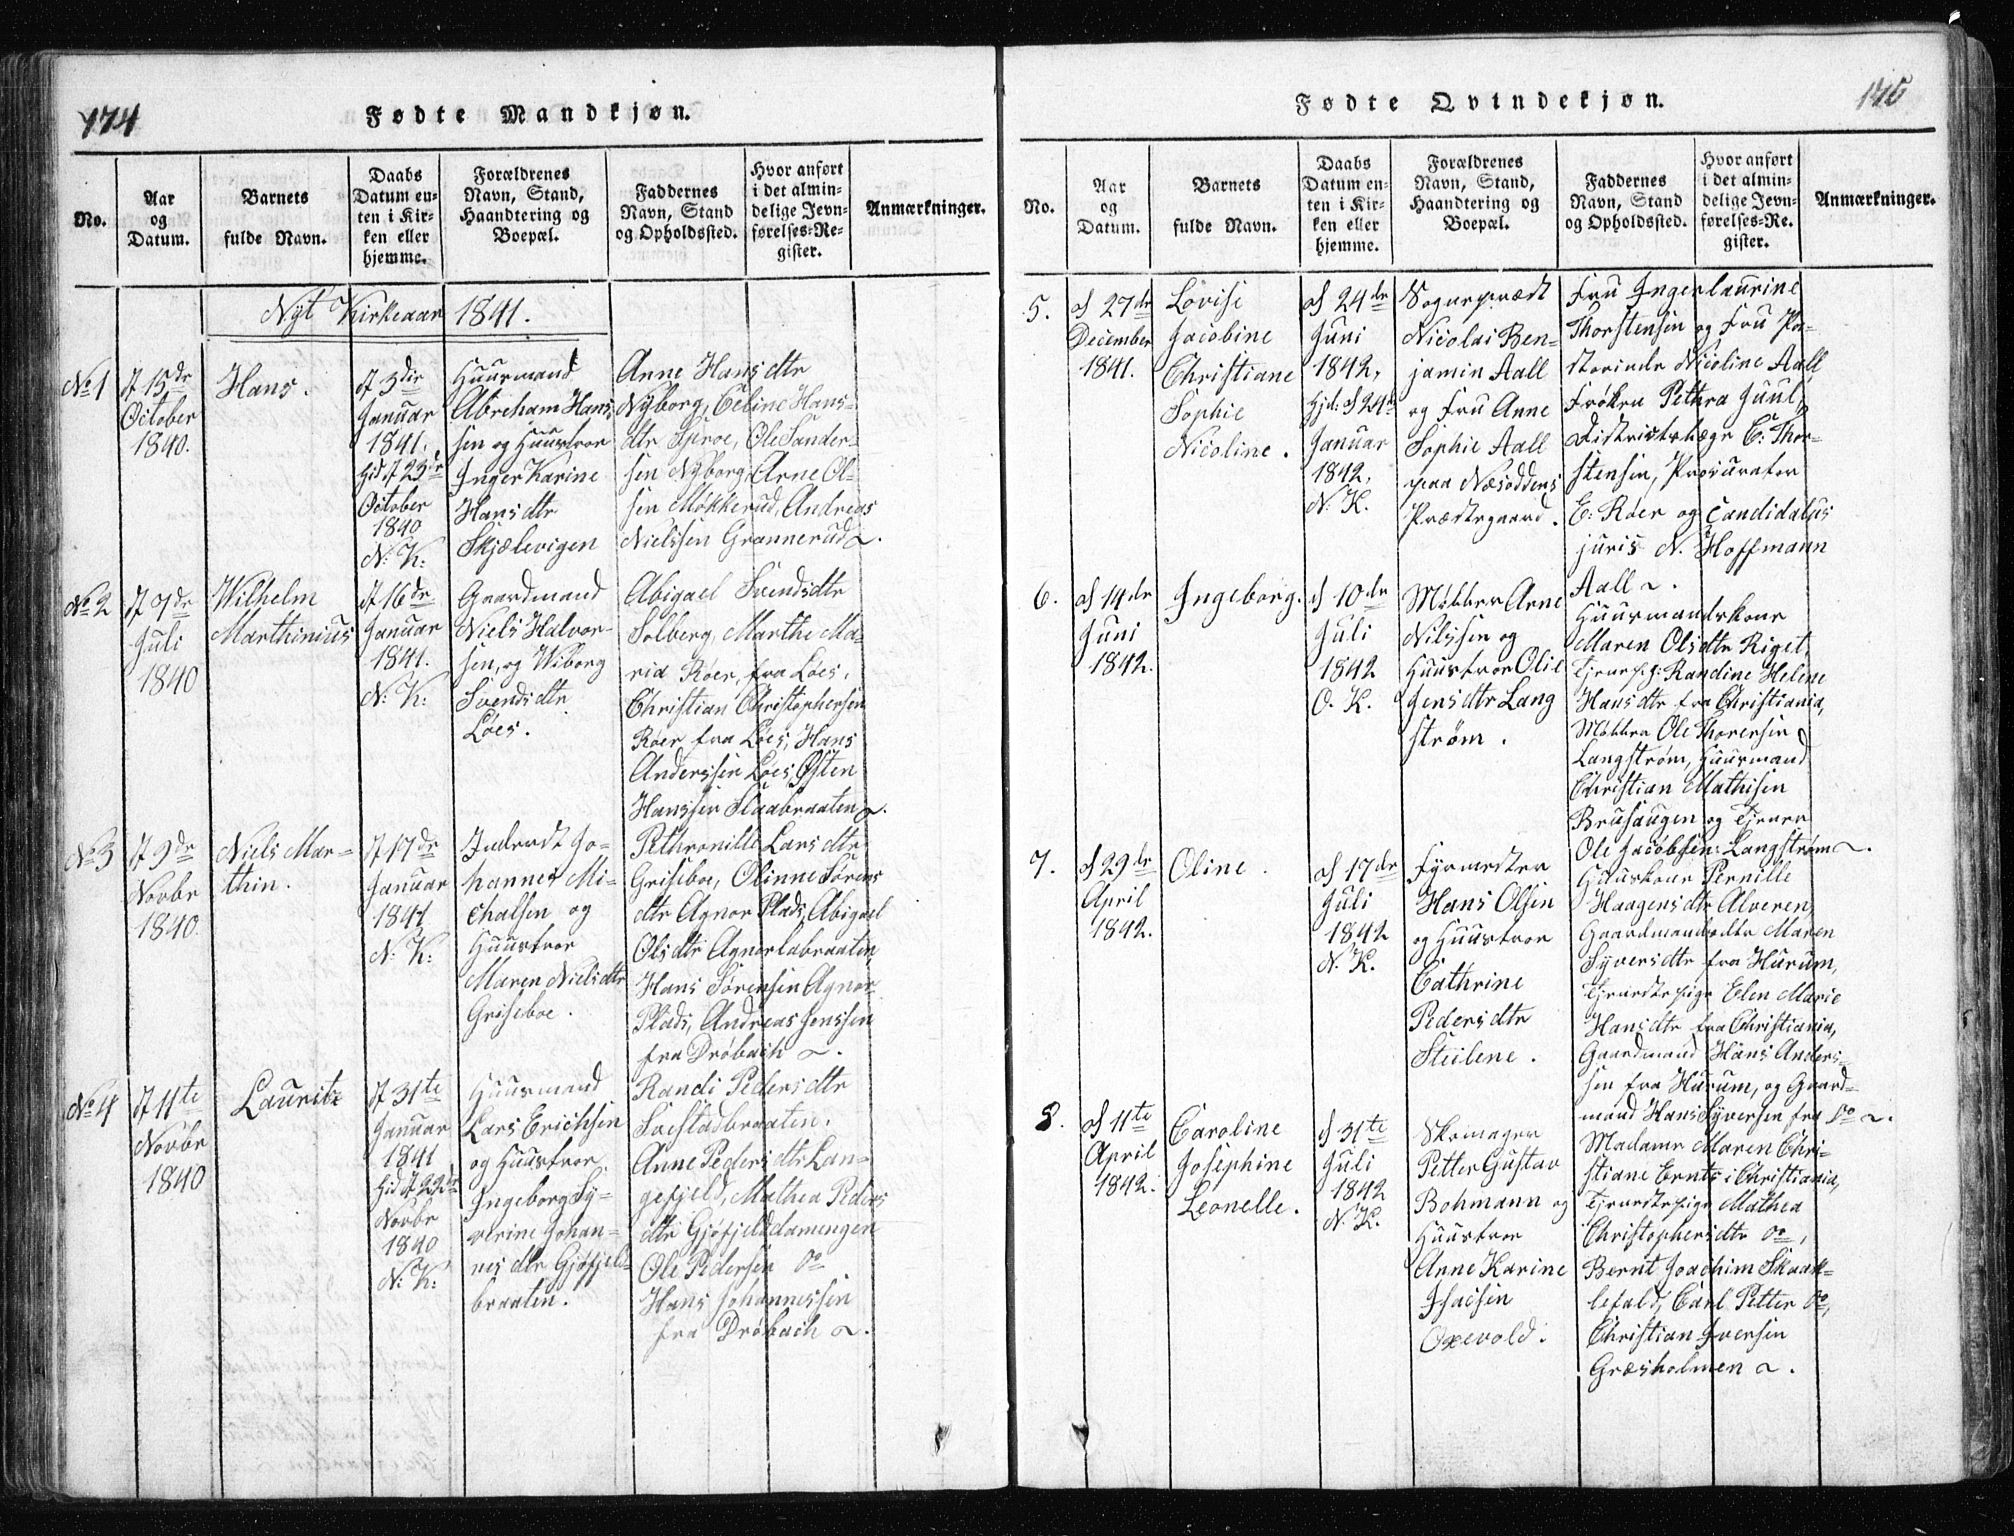 174
Fødte Mandkjøn.
No.
Aar
og
Datum.
Barnets
fulde Navn.
Daabs
Datum en-
ten i Kir-
ken eller
hjemme.
Forældrenes
Navn, Stand,
Haandtering og
Boepæl.
Faddernes
Navn, Stand
og Opholdssted.
Hvor anført
i det almin-
delige Jevn-
førelses-Re-
gister.
Anmærkninger.
Nyt Kirkeaar 1841.
No 1
d 15de
October
1840.
Hans.
d 3die
Januar
1841.
Hjd d 23de
October
1840
N: K:
Huusmand
Abreham Hans
sen og Huustroe
Inger Karine
Hansdtr
Skjælevigen
Anne Hansdtr
Nyborg, Celine Hans-
dtr Sproe, Ole Sander-
sen Nyborg, Arne Ol-
sen Møkkerud, Andreas
Nielssen Grannerud.
No 2
d 7de
Juli
1840
Wilhelm
Marthinius
d 16de
Januar
1841.
N: K:
Gaardmand
Niels Halvor-
sen, og Wiborg
Svendsdtr
Løes.
Abigael Svendsdtr
Solberg, Marthe Ma-
ria Røer, fra Løes,
Christian Christophersen
Røer fra Løes, Hans
Anderssen Løes, Østen
Hanssen Flaabraaten.
No 3
d 9de
Novbr
1840.
Niels Mar-
thin.
d 17de
Januar
1841
N: K:
Inderst Jo-
hannes Mi-
chalsen og
Huustroe
Maren Nielsdtr
Griseboe.
Pethronille Larsdtr
Griseboe, Olinne Sørens
dtr Agnor Plads, Abigael
Olsdtr Agnorlabraaten
Hans Sørensen Agnor
Plads, Andreas Jenssen
fra Drøbach.
No 4
d 11te
Novbr
1840
Lauritz
d 31te
Januar
1841
Hjd d 22de
Novbr
1840
N: K:
Huusmand
Lars Erichsen
og Huustroe
Ingeborg Sy-
verine Johan-
nesdtr Gjøfjeld-
braaten.
Randi Pedersdtr
Toestadbraaten.
Anne Pedersdtr Lan-
gefjeld, Mathea Peders
dtr Gjøfjelddamengen
Ole Pedersen Do
Hans Johannessen
fra Drøbach.
175
Fødte Qvindekjøn.
No.
Aar
og
Datum.
Barnets
fulde Navn.
Daabs
Datum en-
ten i Kir-
ken eller
hjemme.
Forældrenes
Navn, Stand,
Haandtering og
Boepæl.
Faddernes
Navn, Stand
og Opholdssted.
Hvor anført
i det almin-
delige Jevn-
førelses-Re-
gister.
Anmærkninger.
5.
d 27de
December
1841.
Lovise
Jacobine
Christiane
Sophie
Nicoline.
d 24de
Juni
1842,
Hjd: d 24de
Januar
1842,
N. K.
Sognepræst
Nicolai Ben-
jamin Aall
og Fru Anne
Sophie Aall
paa Næsoddens
Præstegaard.
Fru Ingerlaurine
Thorstensen og Fru Pa-
storinde Nicoline Aall
Frøken Pethra Juul,
Distriktslæge C: Thor-
stensen, Procurator
E: Røer og Candidatus
juris N. Hoffmann
Aall.
6.
d 14de
Juni
1842.
Ingeborg.
d 10de
Juli
1842
O. K.
Møller Arne
Nilssen og
Huustroe Olie
Jensdtr Lang
strøm.
Huusmandskone
Maren Olsdtr Riget,
Tjenepg: Randine Helene
Hansdtr fra Christiania,
Møller Ole Thoresen
Langstrøm, Huusmand
Christian Mathisen
Brusaugen og Tjener
Ole Jacobsen: Langstrøm.
7.
d 29de
April
1842.
Oline.
d 17de
Juli
1842
N. K.
Fyrmester
Hans Olsen
og Huustroe
Cathrine
Pedersdtr
Steilene.
Huuskone Pernille
Haagensdtr Alveren,
Gaardmandsdtr Maren
Syversdtr fra Hurum,
Tjenestepige Elen Marie
Hansdtr fra Christiania,
Gaardmand Hans Anders-
sen fra Hurum, og Gaard-
mand Hans Syversen fra Do.
8.
d 11te
April
1842.
Caroline
Josephine
Leonelle.
d 31te
Juli
1842
N. K.
Skomager
Petter Gustav
Bohmann og
Huustroe
Anne Karine
Isacsen
Oxevold.
Madame Maren Chri-
stiane Ernts i Christiania,
Tjenestepige Mathea
Christophersdtr Do,
Bernt Joachim Skaar-
lefald, Carl Petter Do,
Christian Iversen
Græsholmen.